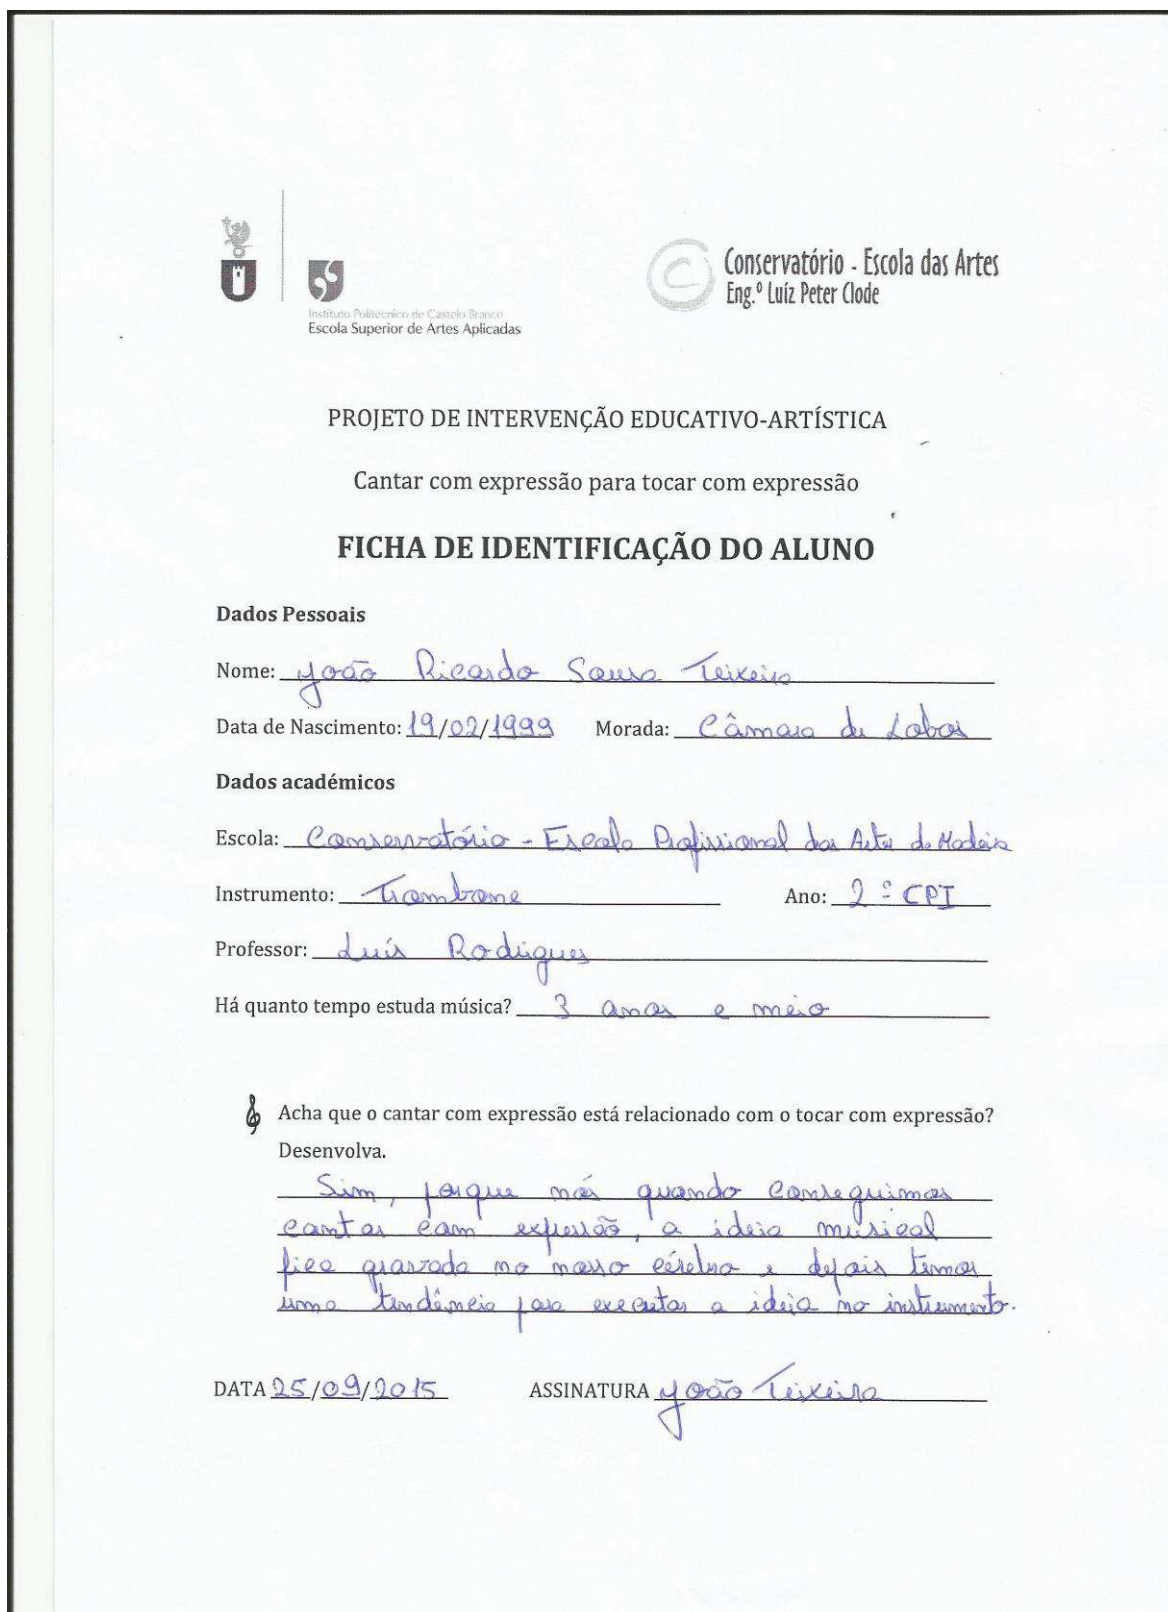 Instituto Politécnico de Castelo Branco
Escola Superior de Artes Aplicadas
Conservatório - Escola das Artes
Eng.º Luíz Peter Clode
PROJETO DE INTERVENÇÃO EDUCATIVO-ARTÍSTICA
Cantar com expressão para tocar com expressão
FICHA DE IDENTIFICAÇÃO DO ALUNO
Dados Pessoais
Nome: João Ricardo Sousa Teixeira
Data de Nascimento: 19/02/1999 Morada: Câmara de Lobos
Dados académicos
Escola: Conservatório - Escola Profissional das Artes da Madeira
Instrumento: Trombone Ano: 2º CPI
Professor: Luís Rodrigues
Há quanto tempo estuda música? 3 anos e meio
Acha que o cantar com expressão está relacionado com o tocar com expressão?
Desenvolva.
Sim, porque nós quando conseguimos
cantar com expressão, a ideia musical
fica gravada no nosso cérebro e depois temos
uma tendência para executar a ideia no instrumento.
DATA 25/09/2015 ASSINATURA João Teixeira